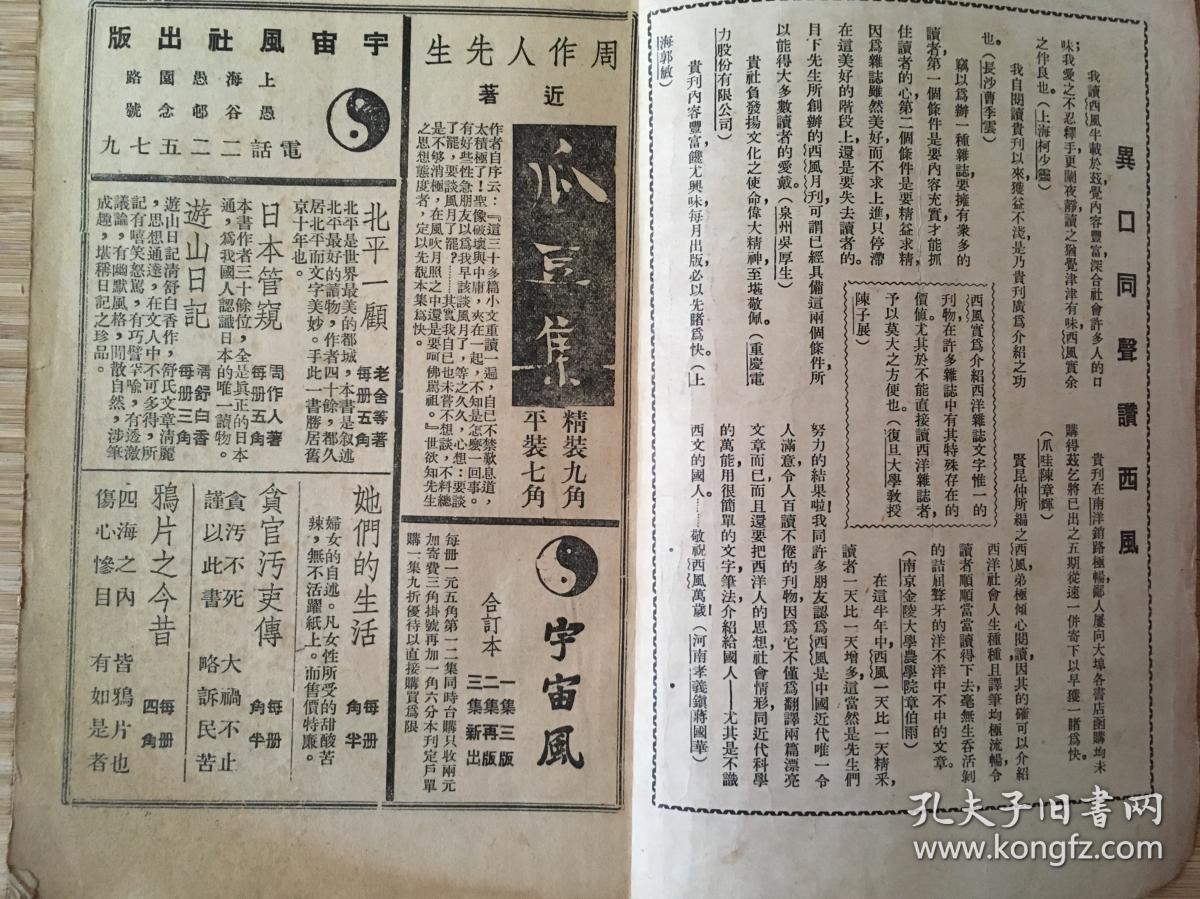 異口同聲讚西風
我讀西風半載於茲覺內容豐富深合社會許多人的口
味；我愛之不忍釋手更闌夜靜讀之猶覺津津有味西風實余
之伴良也。（上海柯少靈）
我自閱讀貴刊以來獲益不淺是乃貴刊廣爲介紹之功
也。（長沙曹季雲）
竊以爲辦一種雜誌要擁有衆多的
讀者，第一個條件是要內容充實，才能抓
住讀者的心第二個條件是要精益求精，
因爲雜誌雖然美好而不求上進，只停滯
在這美好的階段上還是要失去讀者的。
目下先生所創辦的西風月刊可謂已經具備這兩個條件，所
以能得大多數讀者的愛戴。（泉州吳厚生）
貴社負發揚文化之使命偉大精神至堪敬佩。（重慶電
力股份有限公司）
貴刊內容豐富饒尤興味每月出版必以先睹爲快。（上
海郭敏）
西風實爲介紹西洋雜誌文字惟一的
刊物，在許多雜誌中有其特殊存在的
價值，尤其於不能直接讀西洋雜誌者，
予以莫大之方便也。（復旦大學教授
陳子展）
貴刊在南洋銷路極暢鄙人屢向大埠各書店函購均未
購得茲乞將已出之五期從速一併寄下以早獲一睹爲快。
（爪哇陳章輝）
賢昆仲所編之西風弟極傾心閱讀因其的確可以介紹
西洋社會人生種種且譯筆均極流暢令
讀者順順當當讀得下去毫無生吞活剝
的詰屈聱牙的洋不洋中不中的文章。
（南京金陵大學農學院章伯雨）
在這半年中，西風一天比一天精釆，
讀者一天比一天增多；這當然是先生們
努力的結果啦！我同許多朋友認爲西風是中國近代唯一令
人滿意，令人百讀不倦的刊物，因爲它不僅爲翻譯兩篇漂亮
文章而已而且還要把西洋人的思想社會情形同近代科學
的萬能用很簡單的文字筆法介紹給國人——尤其是不識
西文的國人。……敬祝西風萬歲！（河南孝義鎭蔣國華）
周作人先生
近著
瓜豆集
精裝九角
平裝七角
作者自序云：『這三十多篇小文重讀一遍，自己不禁歎息道，
太積極了！聖像破壞與中庸，夾在一起，不知是怎麼一回事。
有好些性急朋友以爲我早該談風月了，等之久久，心想：要談
了罷，要談風月了罷？……其實我自己也未嘗不想談，不料總
是不够消極，在風吹月照之中還是要呵佛罵祖。』世欲知先生
之思想態度者，定以先覩本集爲快。
宇宙風
合訂本
一集三版
二集再版
三集新出
每冊一元五角第一二集同時合購只收兩元
加寄費三角掛號再加一角六分本刊定戶單
購一集九折優待以直接購買爲限
宇宙風社出版
上海愚園路
愚谷邨念號
電話二二五七九
北平一顧
老舍等著
每冊五角
北平是世界最美的都城，本書是叙述
北平最好的讀物，作者四十餘，都久
居北平而文字美妙。手此一書勝居舊
京十年也。
日本管窺
周作人著
每冊五角
本書作者三十餘位，全是眞正的日本
通，爲我國人認識日本的唯一讀物。
遊山日記
清舒白香
每冊三角
遊山日記清舒白香作，舒氏文章清麗
，思想通達，在文人中不可多得，所
記有嘻笑怒駡，有巧譬罕喻，有透激
議論，有幽默風格，閒散自然，涉筆
成趣，堪稱日記之珍品。
她們的生活
每冊
角半
婦女的自述。凡女性所受的甜酸苦
辣，無不活躍紙上。而售價特廉。
貪官汚吏傳
每冊
角半
貪汚不死　大禍不止
謹以此書　略訴民苦
鴉片之今昔
每冊
四角
四海之內　皆鴉片也
傷心慘目　有如是者
孔夫子旧书网
www.kongfz.com